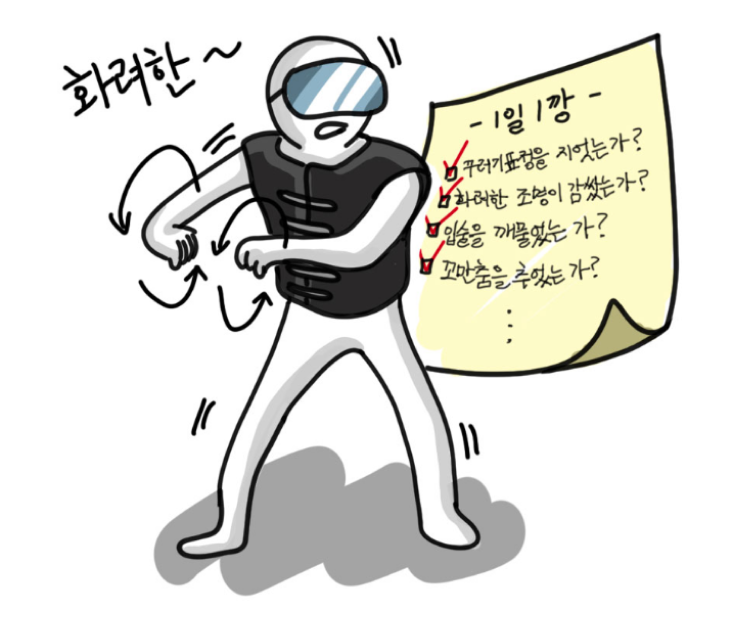 화려한~
- 1일 1깡 -
꾸러기표정을 지었는가?
화려한 조명이 감쌌는가?
입술을 깨물었는가?
꼬만춤을 추었는가?
⋮